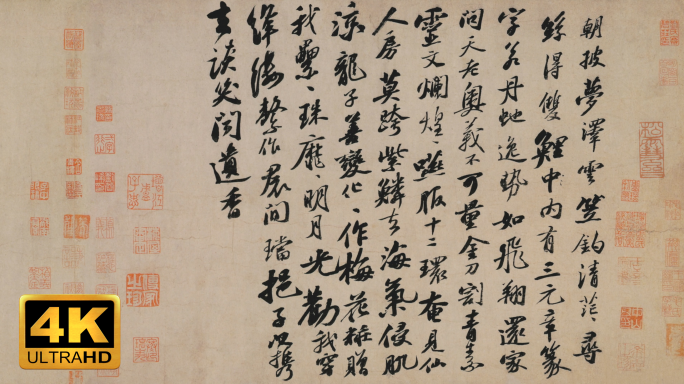 朝披夢澤雲笠釣清茫〻尋
絲得雙鯉中內有三元章篆
字若丹虵逸勢如飛翔還家
問天老奧義不可量金刀割青素
靈文爛煌〻嚥服十二環奄見仙
人房莫跨紫鱗去海氣侵肌
涼龍子善變化〻作梅花粧贈
我纍〻珠靡〻明月光勸我穿
絳縷繫作裙間璫挹子以攜
去談笑聞遺香
4K
ULTRA HD